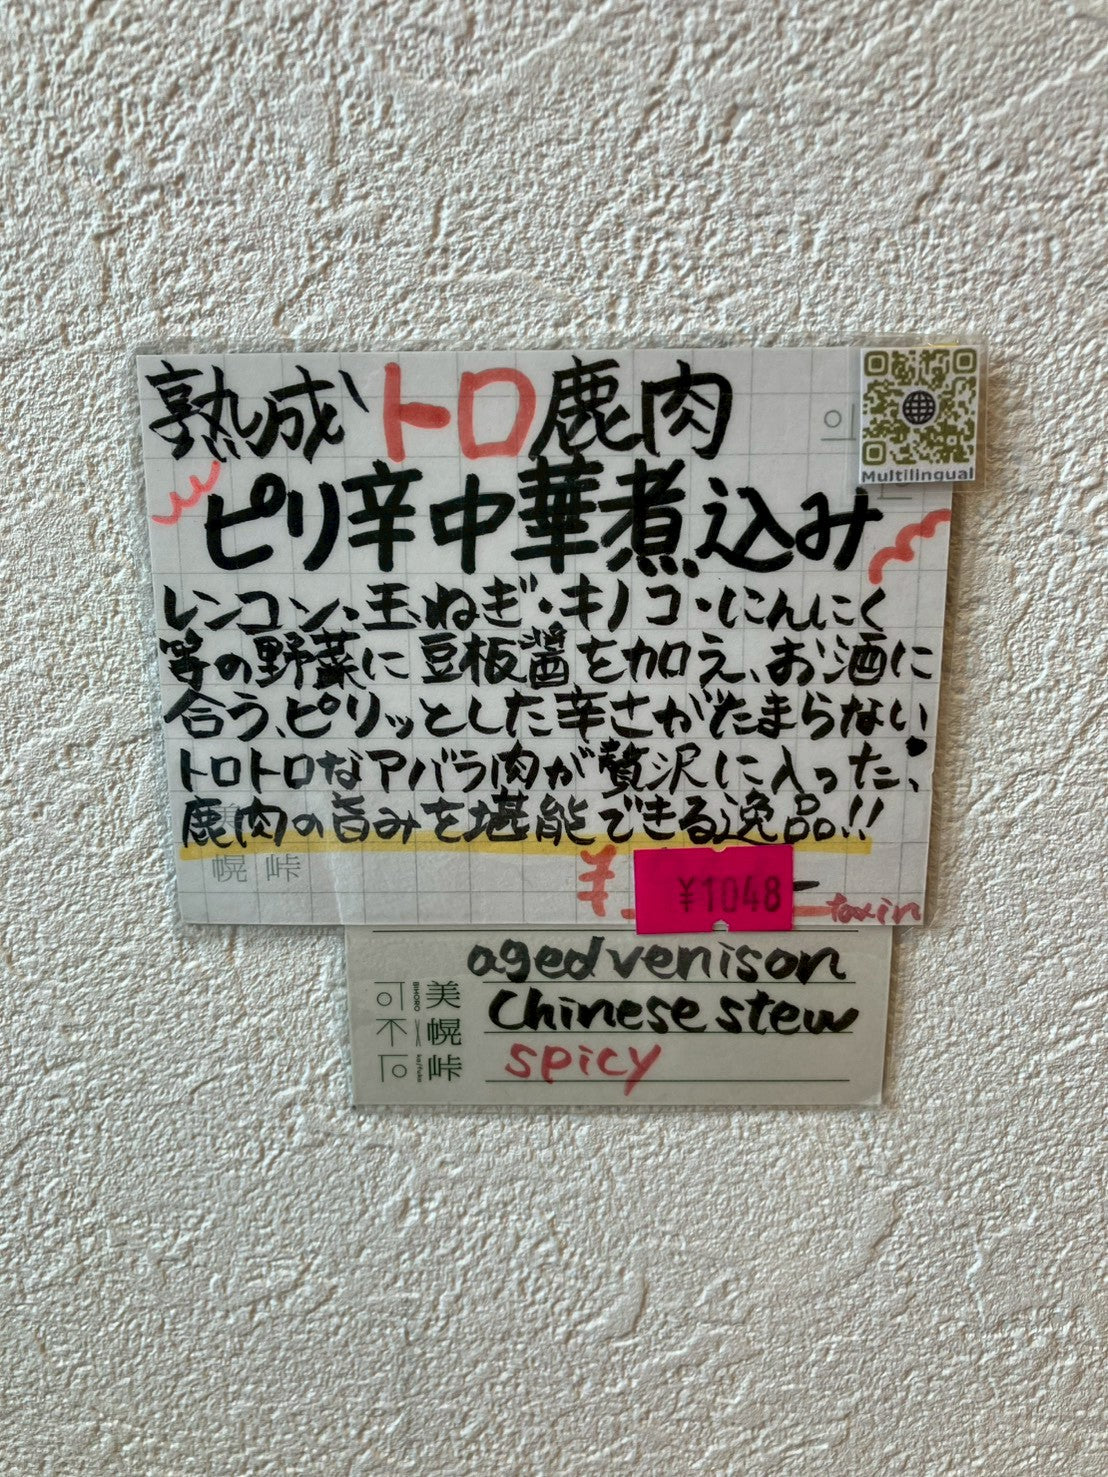 熟成トロ鹿肉
ピリ辛中華煮込み
レンコン・玉ねぎ・キノコ・にんにく
等の野菜に豆板醤を加え、お酒に
合う、ピリッとした辛さがたまらない!
トロトロなアバラ肉が贅沢に入った、
鹿肉の旨みを堪能できる逸品!!
幌峠
¥
¥1048
tax in
Multilingual
aged venison
Chinese stew
spicy
美幌峠
BIHORO
kaifuka